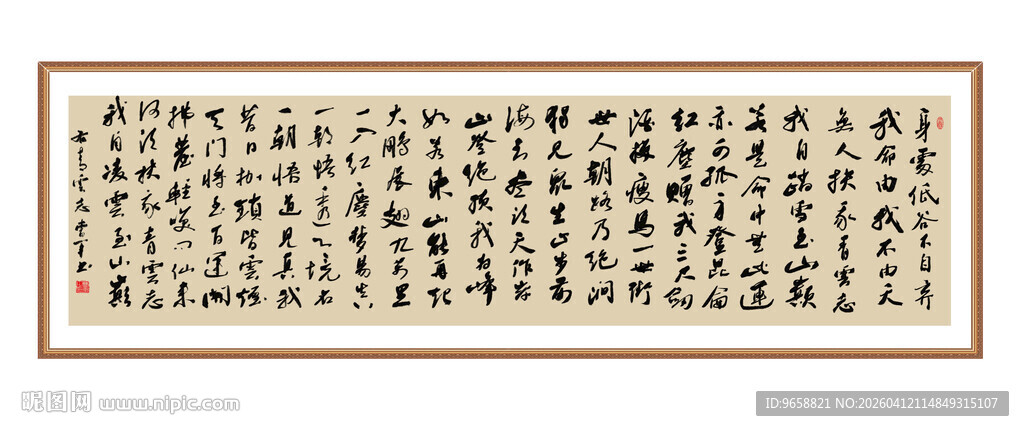 身處低谷不自弃
我命由我不由天
無人扶我青雲志
我自踏雪至山巔
若是命中無此運
亦可孤身登昆侖
紅塵贈我三尺劍
酒換瘦馬一世街
世人朝路乃絕澗
獨見眾生止步前
海到盡頭天作岸
山登絕頂我為峰
如若東山能再起
大鵬展翅九萬里
一入紅塵夢易失
一朝悟透心境右
一朝悟道見真我
昔日枷鎖皆雲煙
天門將至百運開
拂塵輕笑問仙來
何須扶我青雲志
我自凌雲至山巔
右青雲志
昵图网 www.nipic.com
ID:9658821 NO:20260412114849315107